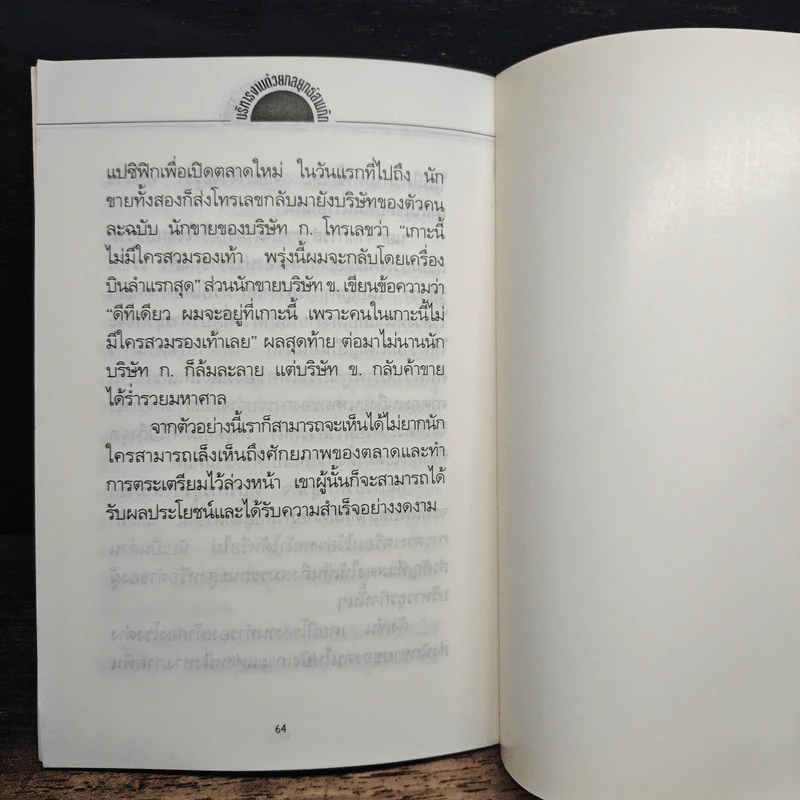 บริหารงานด้วยกลยุทธ์สามก๊ก
แปซิฟิกเพื่อเปิดตลาดใหม่ ในวันแรกที่ไปถึง นัก
ขายทั้งสองก็ส่งโทรเลขกลับมายังบริษัทของตัวคน
ละฉบับ นักขายของบริษัท ก. โทรเลขว่า “เกาะนี้
ไม่มีใครสวมรองเท้า พรุ่งนี้ผมจะกลับโดยเครื่อง
บินลำแรกสุด” ส่วนนักขายบริษัท ข. เขียนข้อความว่า
“ดีทีเดียว ผมจะอยู่ที่เกาะนี้ เพราะคนในเกาะนี้ไม่
มีใครสวมรองเท้าเลย” ผลสุดท้าย ต่อมาไม่นานนัก
บริษัท ก. ก็ล้มละลาย แต่บริษัท ข. กลับค้าขาย
ได้ร่ำรวยมหาศาล
จากตัวอย่างนี้เราก็สามารถจะเห็นได้ไม่ยากนัก
ใครสามารถเล็งเห็นถึงศักยภาพของตลาดและทำ
การตระเตรียมไว้ล่วงหน้า เขาผู้นั้นก็จะสามารถได้
รับผลประโยชน์และได้รับความสำเร็จอย่างงดงาม
64